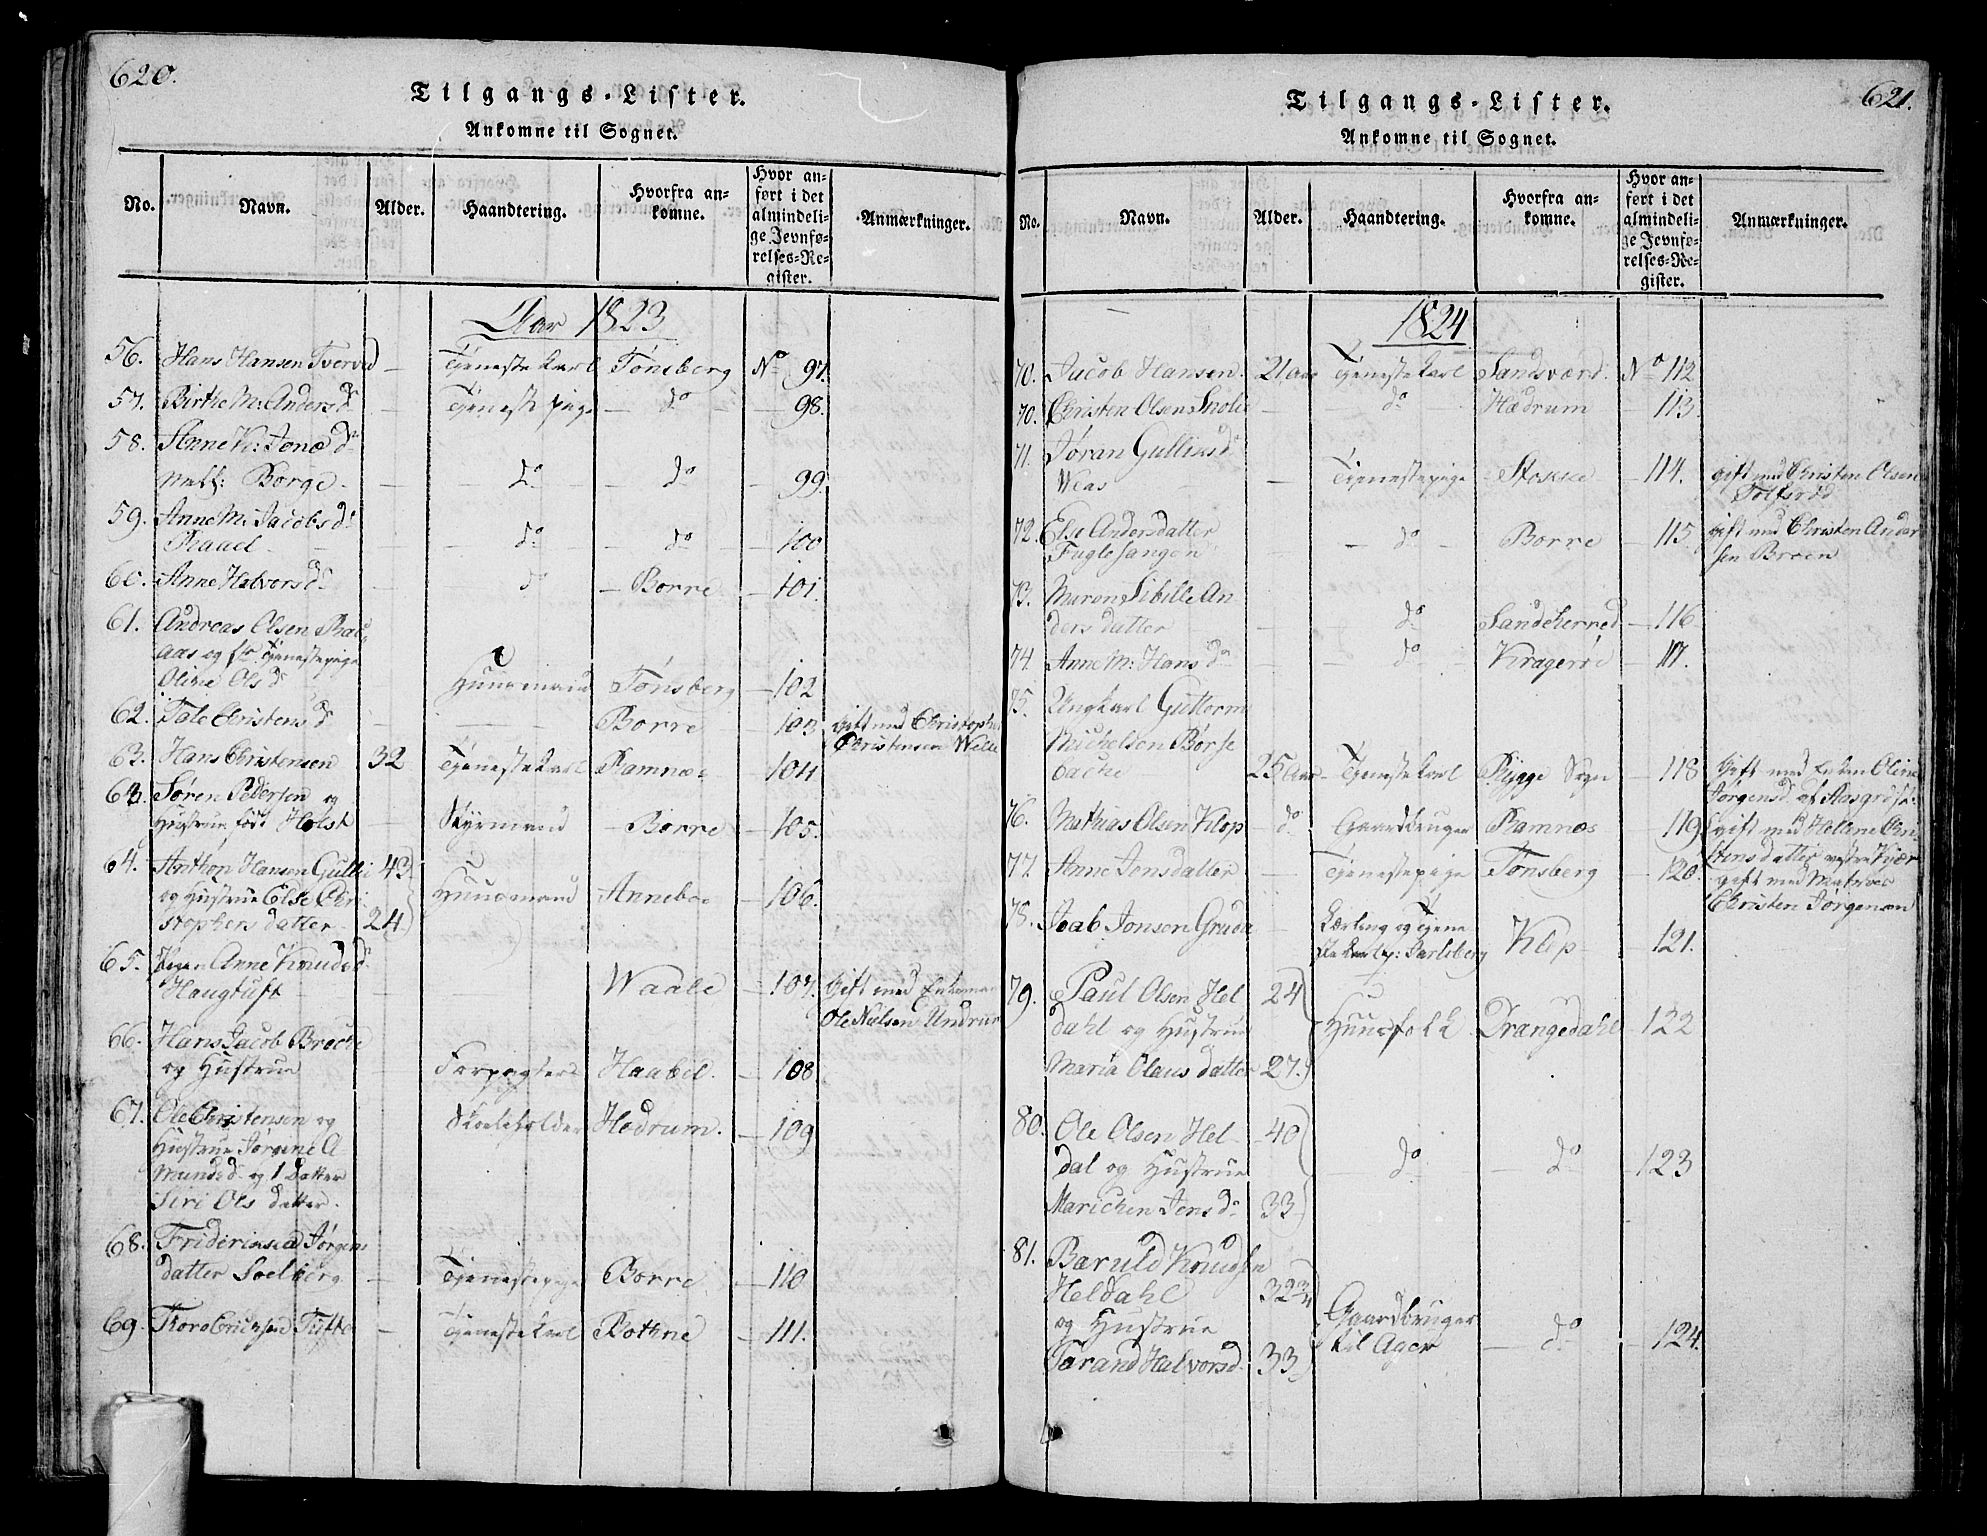 620.
Tilgangs-Lister.
Ankomne til Sognet.
No. Navn. Alder. Haandtering. Hvorfra ankomne. Hvor anført i det almindelige Jevnførelses-Register. Anmærkninger.
Aar 1823
56. Hans Hansen Tverved — Tjenestekarl Tønsberg No 97.
57. Birthe M: Andersd. — Tjenestepige — do — 98.
58. Anne K: Jonsd.
Borge — Do — do — 99.
59. Anne M: Jacobsd.
Raael — do — do — 100
60. Anne Halvorsd. — do — Borre — 101.
61. Andreas Olsen
aas og Tjenestepige
Oline Olsd. Huusmand Tønsberg — 102
62. Tale Christensd. — Borre — 103 Gift med Christopher
Christensen
63. Hans Christensen 32 Tjenestekarl Ramnæs — 104
63. Søren Pedersen og
Hustrue født Holst — Styrmand — Borre — 105.
64. Anthon Hansen Gulli 43
og Hustrue Else Chri Huusmand Anneboe — 106.
stophersdatter 24
65. Anne Knudsd.
Haugtuft — Waale — 107. Gift med Enkemand
Ole Nielsen Undrum
66. Hans Jacob Broche
og Hustrue — Forpagter Haabil. — 108
67. Ole Christensen og Skoleholder Hedrum. — 109
Hustrue Jørgine A
mundsd. og 1 Datter
Siri Olsdatter.
68. Friderica Jørgens
datter Soelberg — Tjenestepige Borre — 110
69. Thore Erichsen Tufte — Tjenestekarl Bothne — 111.
621.
Tilgangs-Lister.
Ankomne til Sognet.
No. Navn. Alder. Haandtering. Hvorfra ankomne. Hvor anført i det almindelige Jevnførelses-Register. Anmærkninger.
1824
70. Jacob Hansen. 21 aar Tjenestekarl Sandsværd. No 112
70. Christen Olsen — do Hædrum — 113.
71. Jøran Gulliksd.
Weas — Tjenestepige Stokke — 114. gift med Christen Olsen
Tolfsrød
72. Else Andersdatter
Fuglesangen — do — Borre — 115. gift med Christen Ander
sen Broen
73. Maren Sibille An
dersdatter — do Sandeherred — 116
74. Anne M: Hansd. — do Kragerøe — 117.
75. Ungkarl Guttorm
Michelsen Børse
backe 25 Aar Tjenestekarl Rygge Sogn — 118 Gift med Enken Oline
Jørgensd. af Aasgrd.
76. Mathias Olsen Klop — do Gaardbruger Ramnæs 119 gift med Helene Chri
stensdatter vestre Kjær
77. Anne Jensdatter — Tjenestepige Tønsberg — 120. gift med Matros
Christen Jørgensen
78. Jonsen Gruda — Lærling og Tjene
stekarl p: Jarlsberg Klop — 121.
79. Paul Olsen Hel 24
dahl og Hustrue Huusfolk Drangedahl 122
Maria Olausdatter 27.
80. Ole Olsen Hel 40
dal og Hustrue — do — do 123
Marichen Jensd. 33
81. Bæruld Knudsen
Heldahl 32 3/4
og Hustrue Gaardbruger
Tarand Halvorsd. 33 til Ager — do — 124.